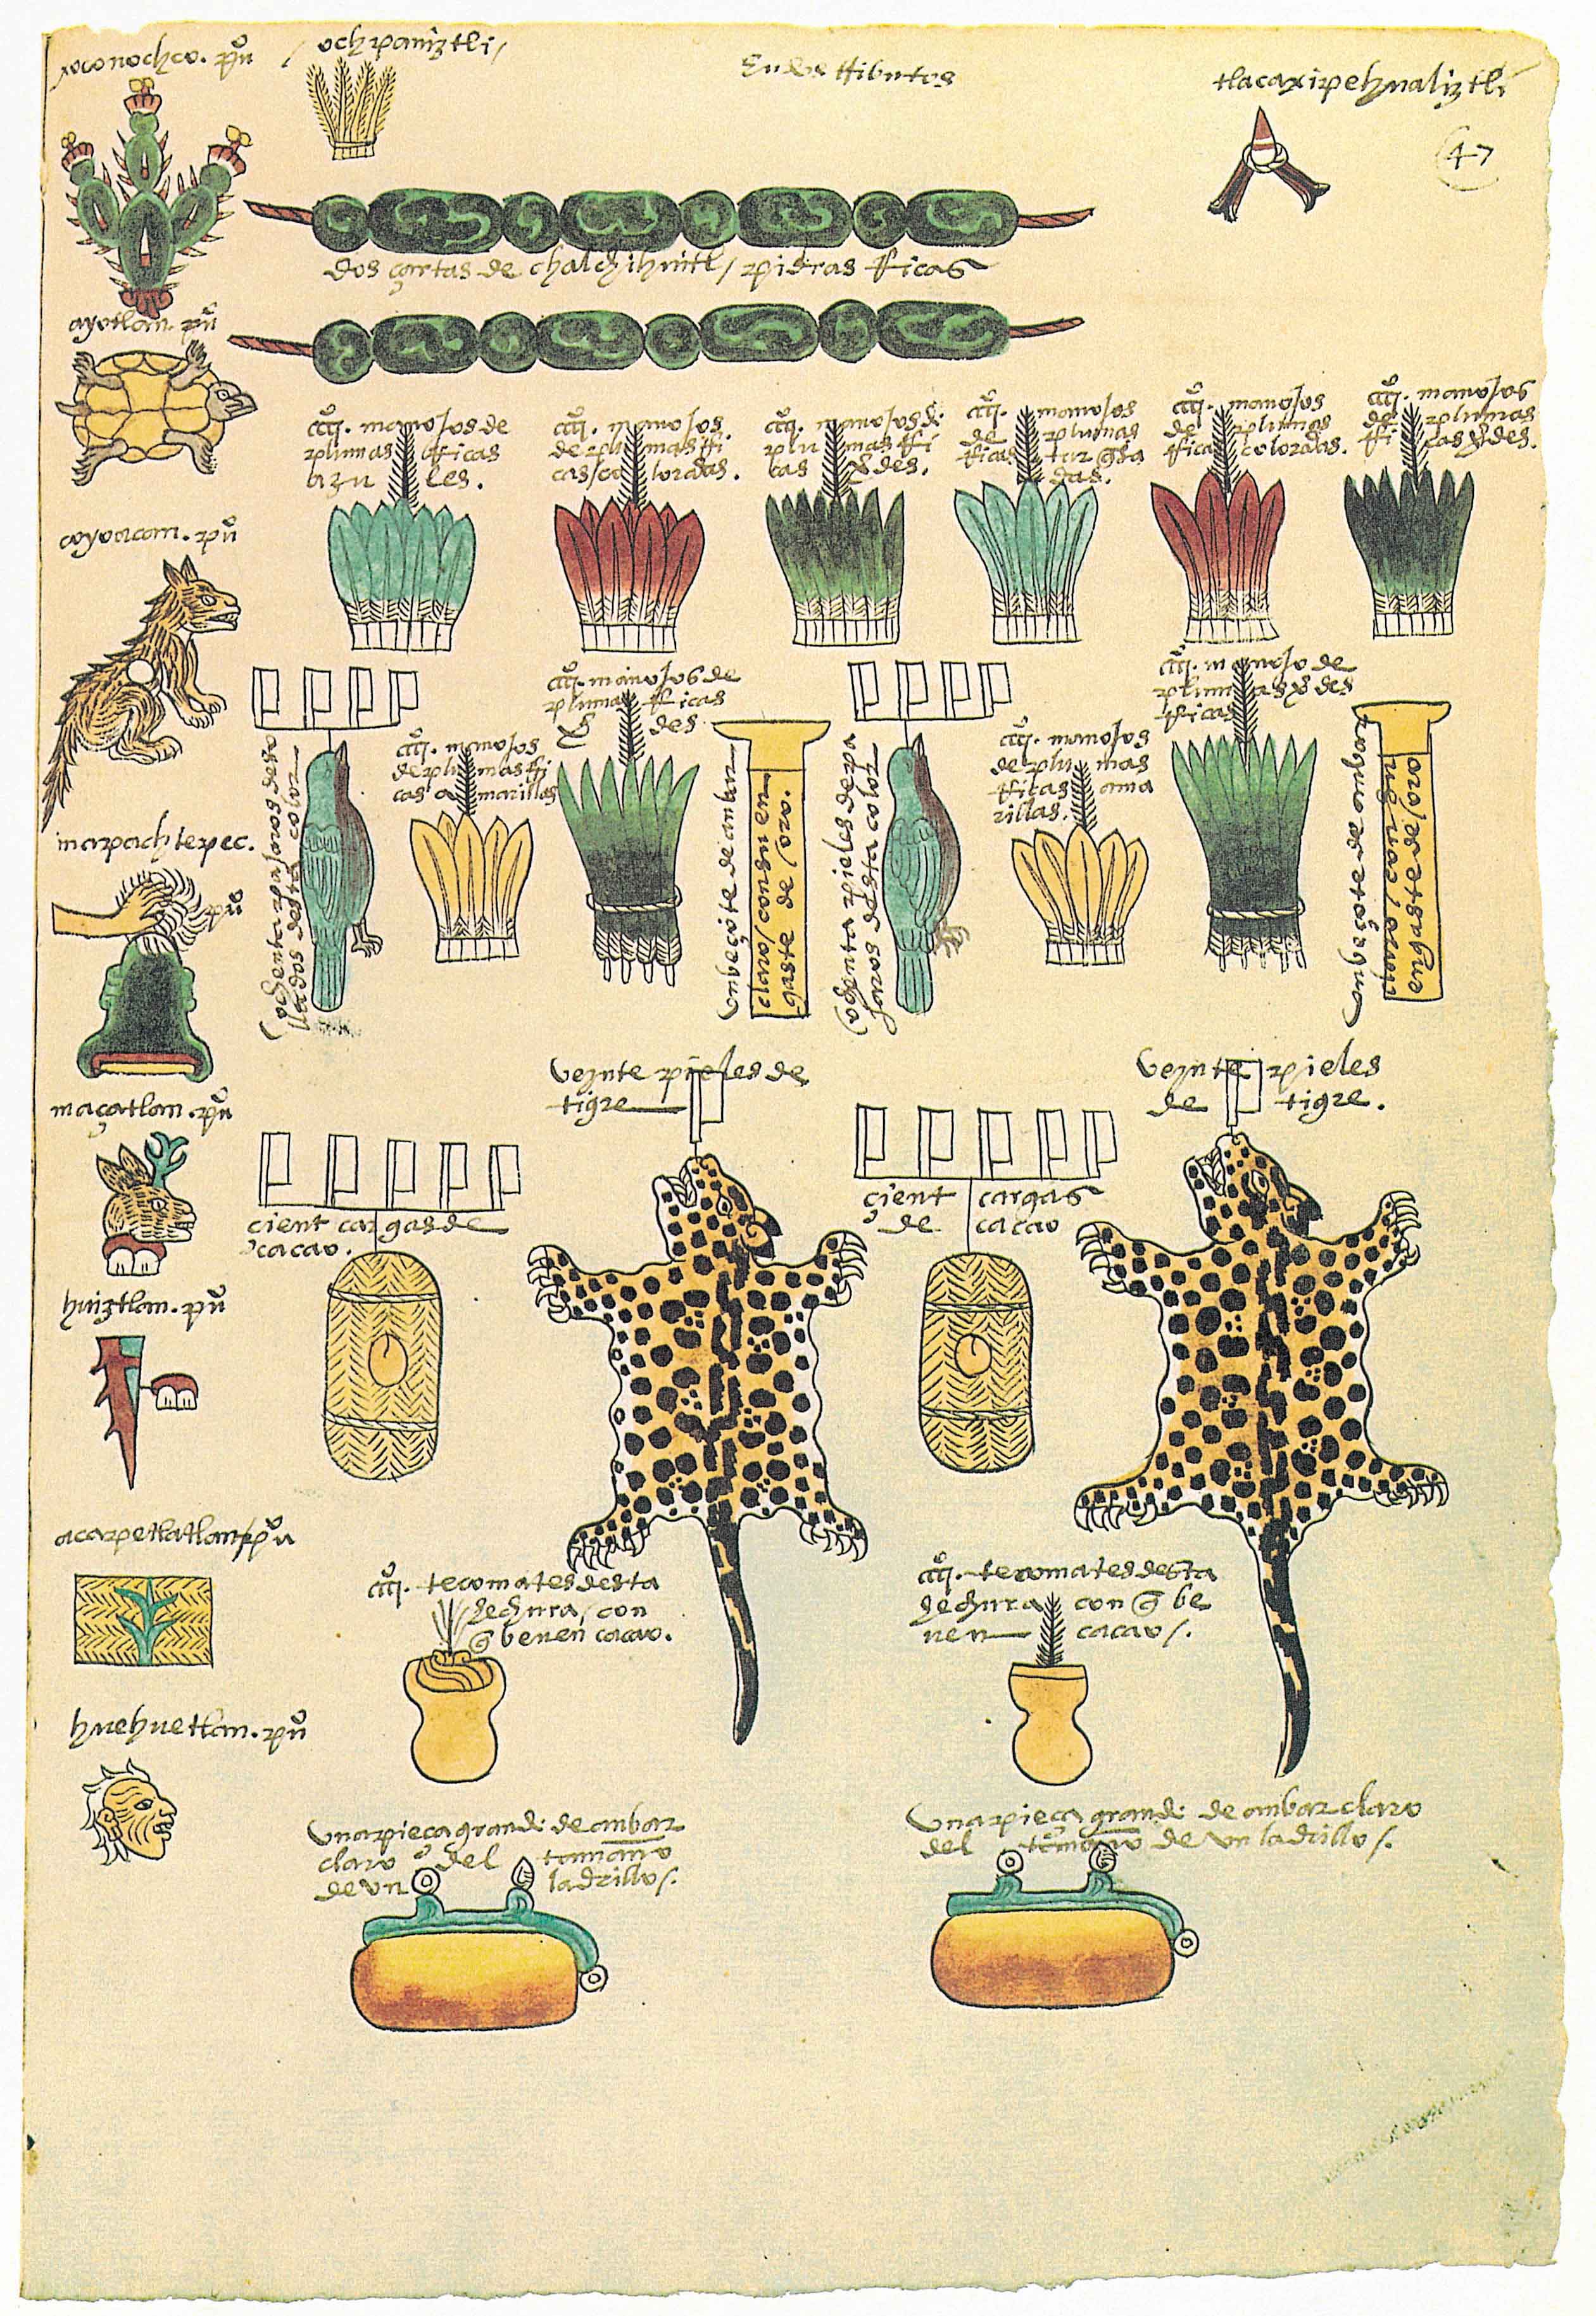 xoconochco. puo
/ochpaniztli/
tlacaxipehualiztli
47
dos sartas de chalchihuitl / piedras rricas
ayotlan. puo
cccc. manojos de
plumas rricas
azules.
cccc. manojos
de plumas rri
cas/coloradas.
cccc. manojos de
plumas rri
cas vdes.
cccc. manojos
de plumas
rricas turqsa
das.
cccc. manojos
de plumas
rricas coloradas.
cccc. manojos
de plumas
rricas vdes.
coyoacan. puo
cccc. manojos de
plumas rricas
vdes
cccc. manojo de
plumas vdes
rricas
cccc. manojos
de plumas rri
cas amarillas
cccc. manojos
de plumas
rricas ama
rillas.
(ochenta pajaros deso
llados desta color
un beçote de anbar
claro/con su en
gaste de oro.
(ochenta pieles de pa
jaros desta color
engaste de/oro
mapachtepec.
puo
maçatlan. puo
veynte pieles de
tigre
veynte pieles
de tigre.
çient cargas de
cacao.
çient cargas
de cacao
huiztlan. puo
acapetlatlan/puo
cccc. tecomates desta
hechura/con
q beuen cacao.
cccc. tecomates desta
hechura con q be
uen cacao/.
huehuetlan. puo
una pieça grande de anbar
claro del tamaño
de un ladrillo/.
una pieça grande de anbar claro
del tamaño de un ladrillo/.